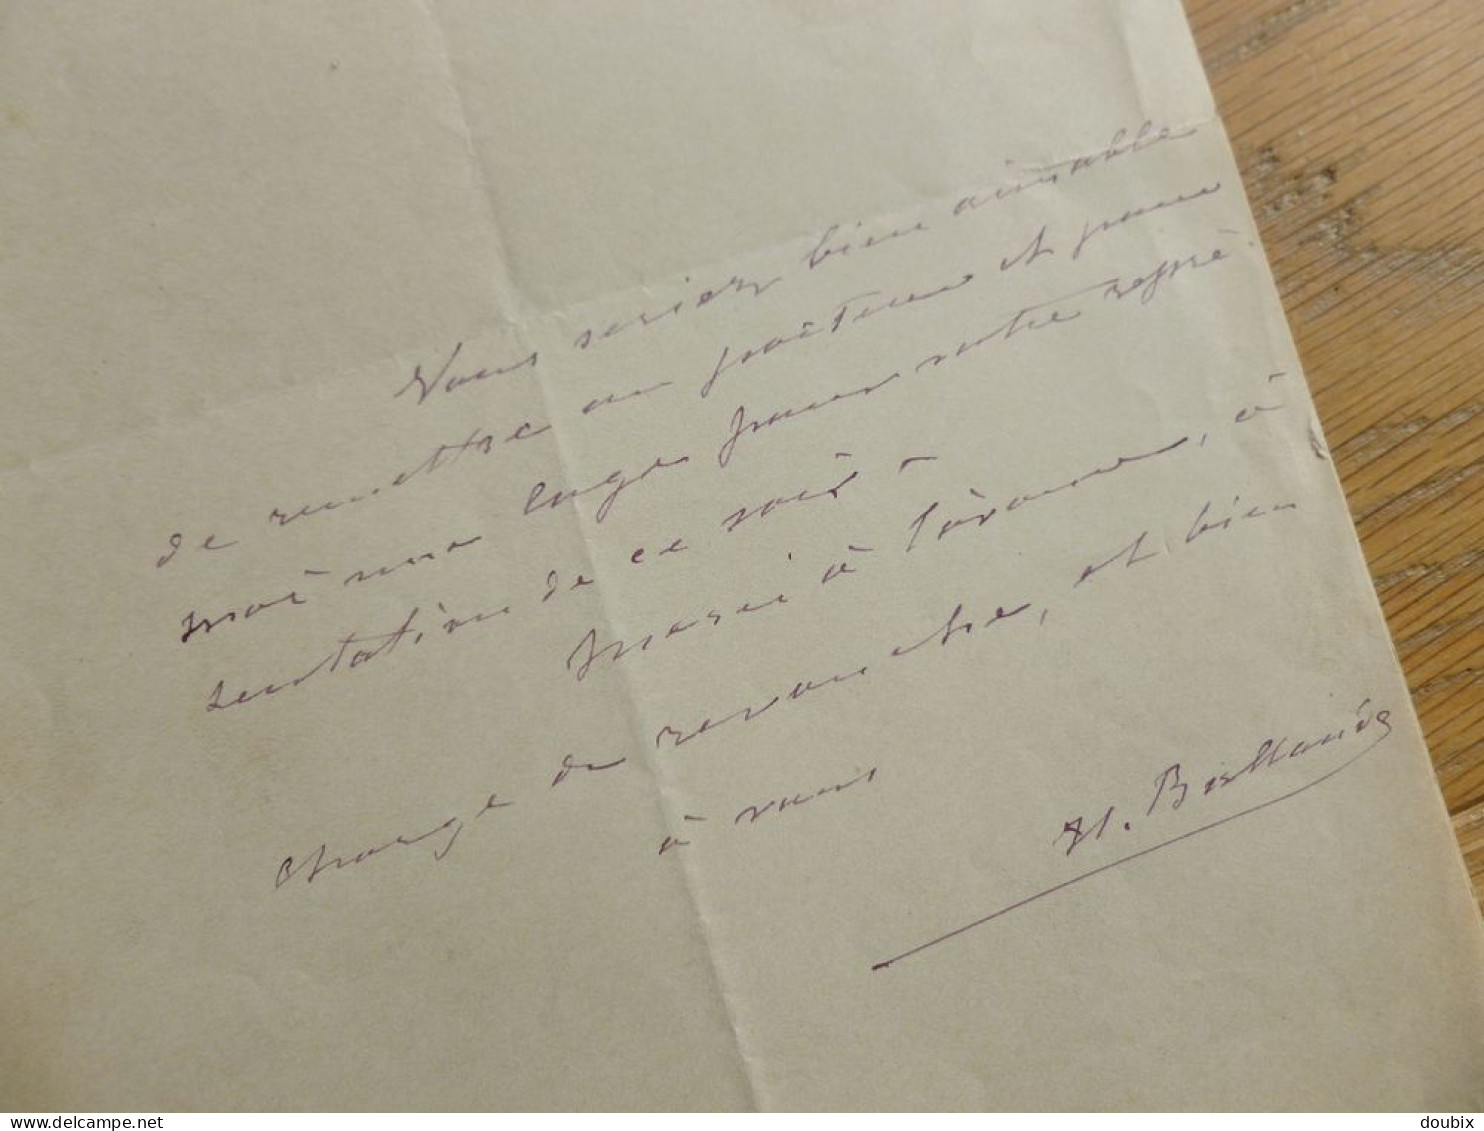 Vous seriez bien aimable
de remettre au porteur et pour
moi une loge pour votre repré-
sentation de ce soir -
Merci à l'avance, à
charge de revanche, et bien
à vous
doubix